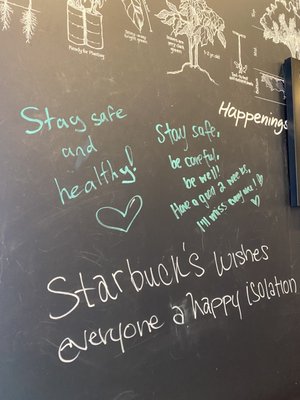 Ready for Planting
Happenings
Stay safe
and
healthy!
Stay safe,
be careful,
be well!
Have a good 2 weeks,
I'll miss everyone!
Starbuck's wishes
everyone a happy isolation